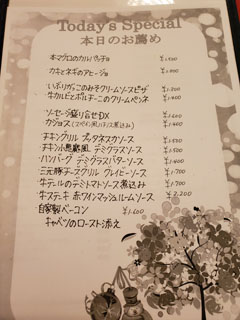 Today's Special
本日のお薦め
本マグロのカルパッチョ ¥1,500
カキとネギのアヒージョ
いぶりがっこのみそクリームソースピザ
牛カルビとポルチーニのクリームペンネ
ソーセージ盛り合せDX ¥1,600
カジョス(スペイン風ハチノス煮込み) ¥1,400
チキングリル プッタネスカソース ¥1,500
チキン小悪魔風 デミグラスソース ¥1,500
ハンバーグ デミグラスバターソース ¥1,400
三元豚チーズグリル グレイビーソース ¥1,700
牛テールのデミトマトソース煮込み ¥1,700
牛ステーキ 赤ワインマッシュルームソース ¥2,200
自家製ベーコン ¥1,600
キャベツのロースト添え